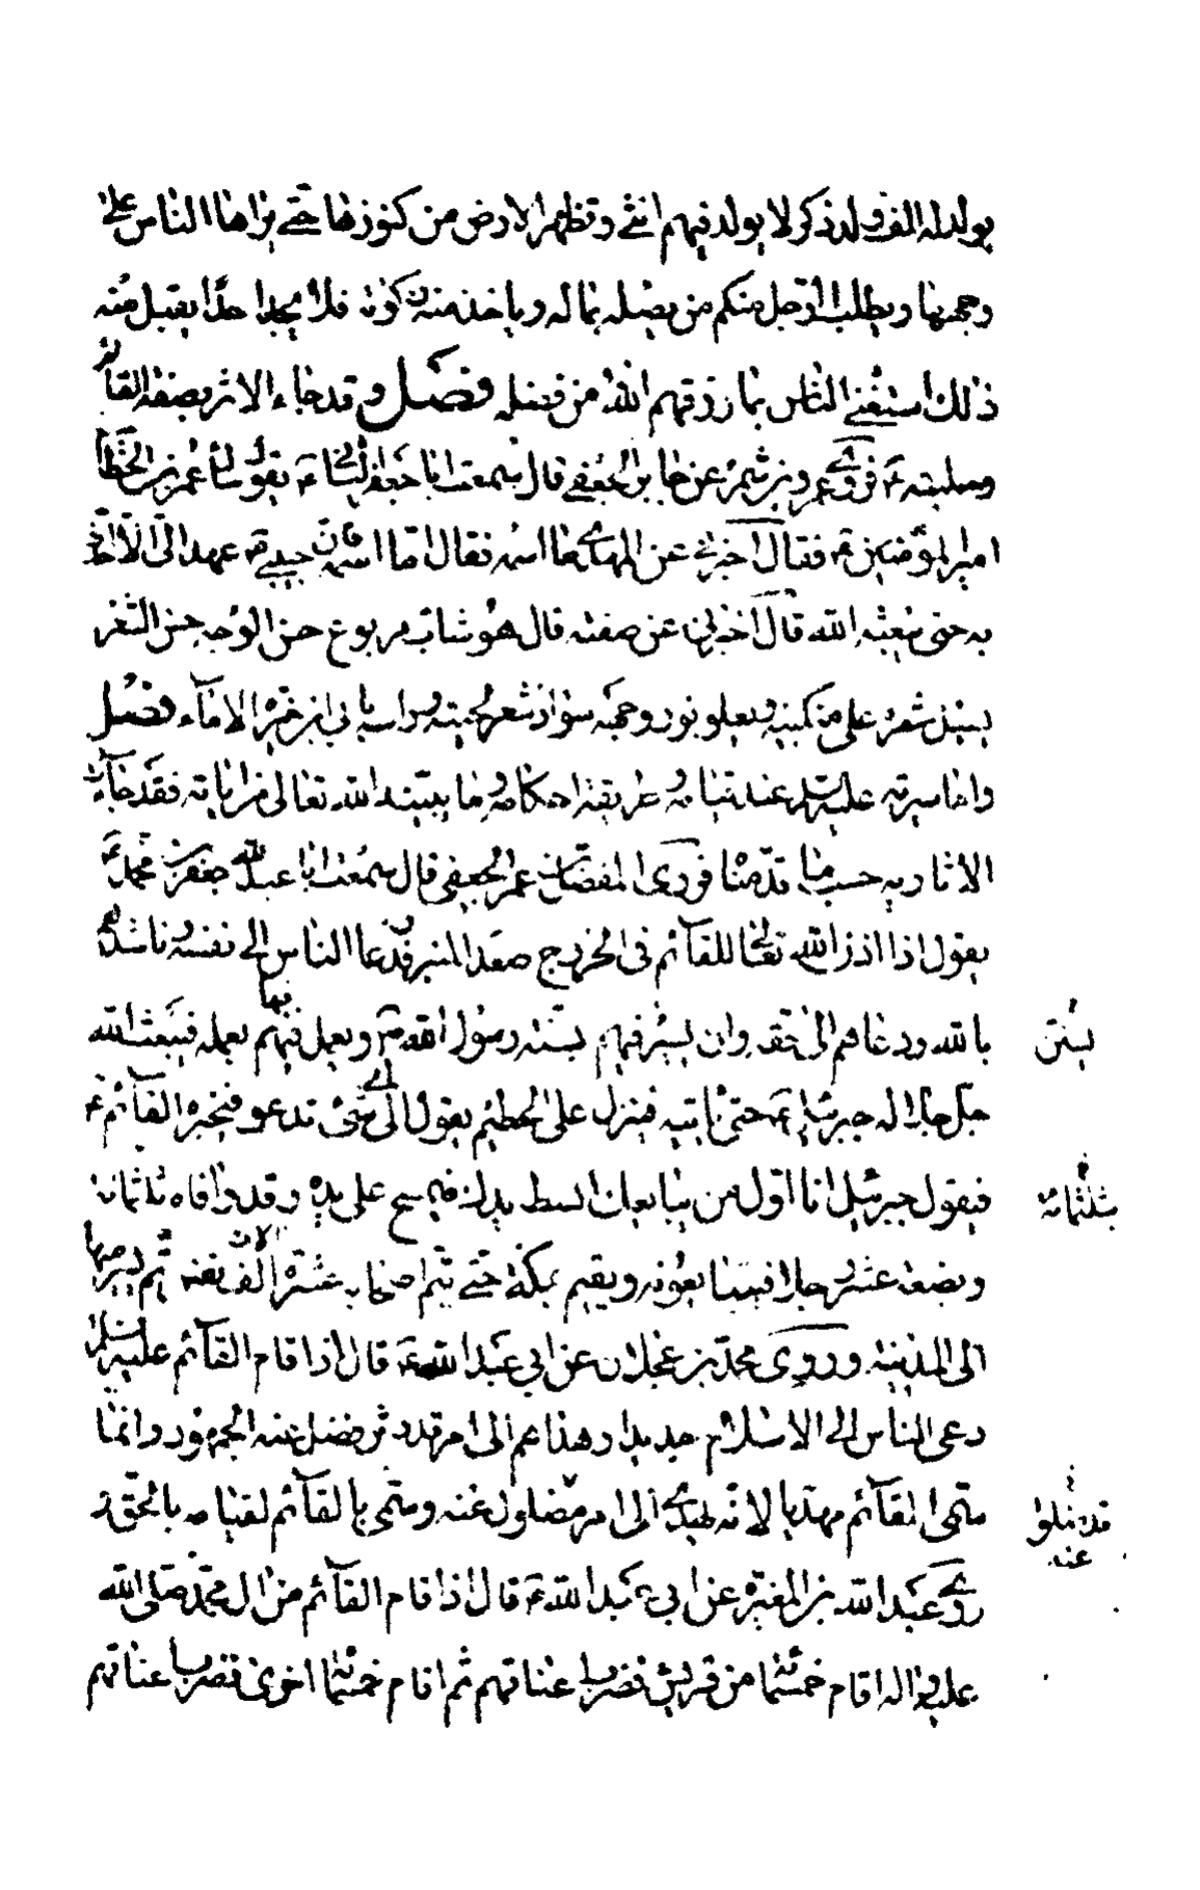 يولد له الف ولد ذكر لا يولد فيهم انثى وتظهر الارض من كنوزها حتى يراها الناس على
وجهها ويطلب الرجل منكم من يصله بماله وياخذ منه زكوته فلا يجد احدا يقبل منه
ذلك استغنى الناس بما رزقهم الله من فضله فصل وقد جاء الاثر بصفة القائم
وحليته ع فروى عمرو بن شمر عن جابر الجعفى قال سمعت ابا جعفر ع يقول سال عمر بن الخطاب
امير المؤمنين ع فقال اخبرني عن المهدي ما اسمه فقال اما اسمه فان حبيبي ع عهد الىّ الا احدث
به حتى يبعثه الله قال اخبرني عن صفته قال هو شاب مربوع حسن الوجه حسن الشعر
يسيل شعره على منكبيه ويعلو نور وجهه سواد شعر لحيته وراسه بابي ابن خيرة الاماء فصل
واما سيرته عليه السلم عند قيامه وطريقة احكامه وما يبينه الله تعالى من اياته فقد جاءت
الاثار به حسب ما قدمنا فروى المفضل بن عمر الجعفي قال سمعت ابا عبد الله جعفر بن محمد ع
يقول اذا اذن الله تعالى للقائم فى الخروج صعد المنبر فدعا الناس الى نفسه وناشدهم
بالله ودعاهم الى حقه وان يسير فيهم بسنة رسول الله ص ويعمل فيهم بعمله فيبعث الله
بسنن
جل جلاله جبرئيل ع حتى ياتيه فينزل على الحطيم يقول الى اي شئ تدعو فيخبره القائم ع
فيقول جبرئيل انا اول من يبايعك ابسط يدك فيمسح على يده وقد وافاه ثلثمائة
بثلثمائه
وبضعة عشر رجلا فيبايعونه ويقيم بمكة حتى يتم اصحابه عشرة الاف نفس ثم يسير منها
الى المدينة وروى محمد بن عجلان عن ابي عبد الله ع قال اذا قام القائم عليه السلم
دعى الناس الى الاسلام جديدا وهداهم الى امر قد دثر فضل عنه الجمهور وانما
سمى القائم مهديا لانه يهدي الى امر مضلول عنه وسمى بالقائم لقيامه بالحق و
قد ضلوا
عنه
روى عبد الله بن المغيرة عن ابي عبد الله ع قال اذا قام القائم من ال محمد صلى الله
عليه واله اقام خمسمائة من قريش فضرب اعناقهم ثم اقام خمسمائة اخرى فضرب اعناقهم